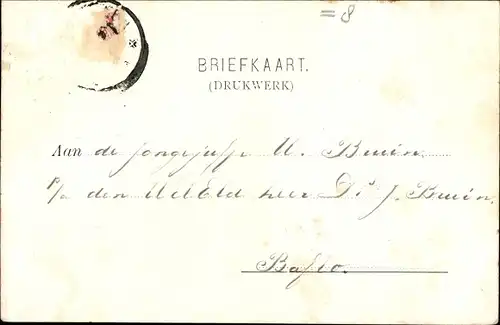 = 8
BRIEFKAART.
(DRUKWERK)
Aan de Jongejuffr. M. Bruin.
p/a den WelEd heer Ds J. Bruin.
Baflo.